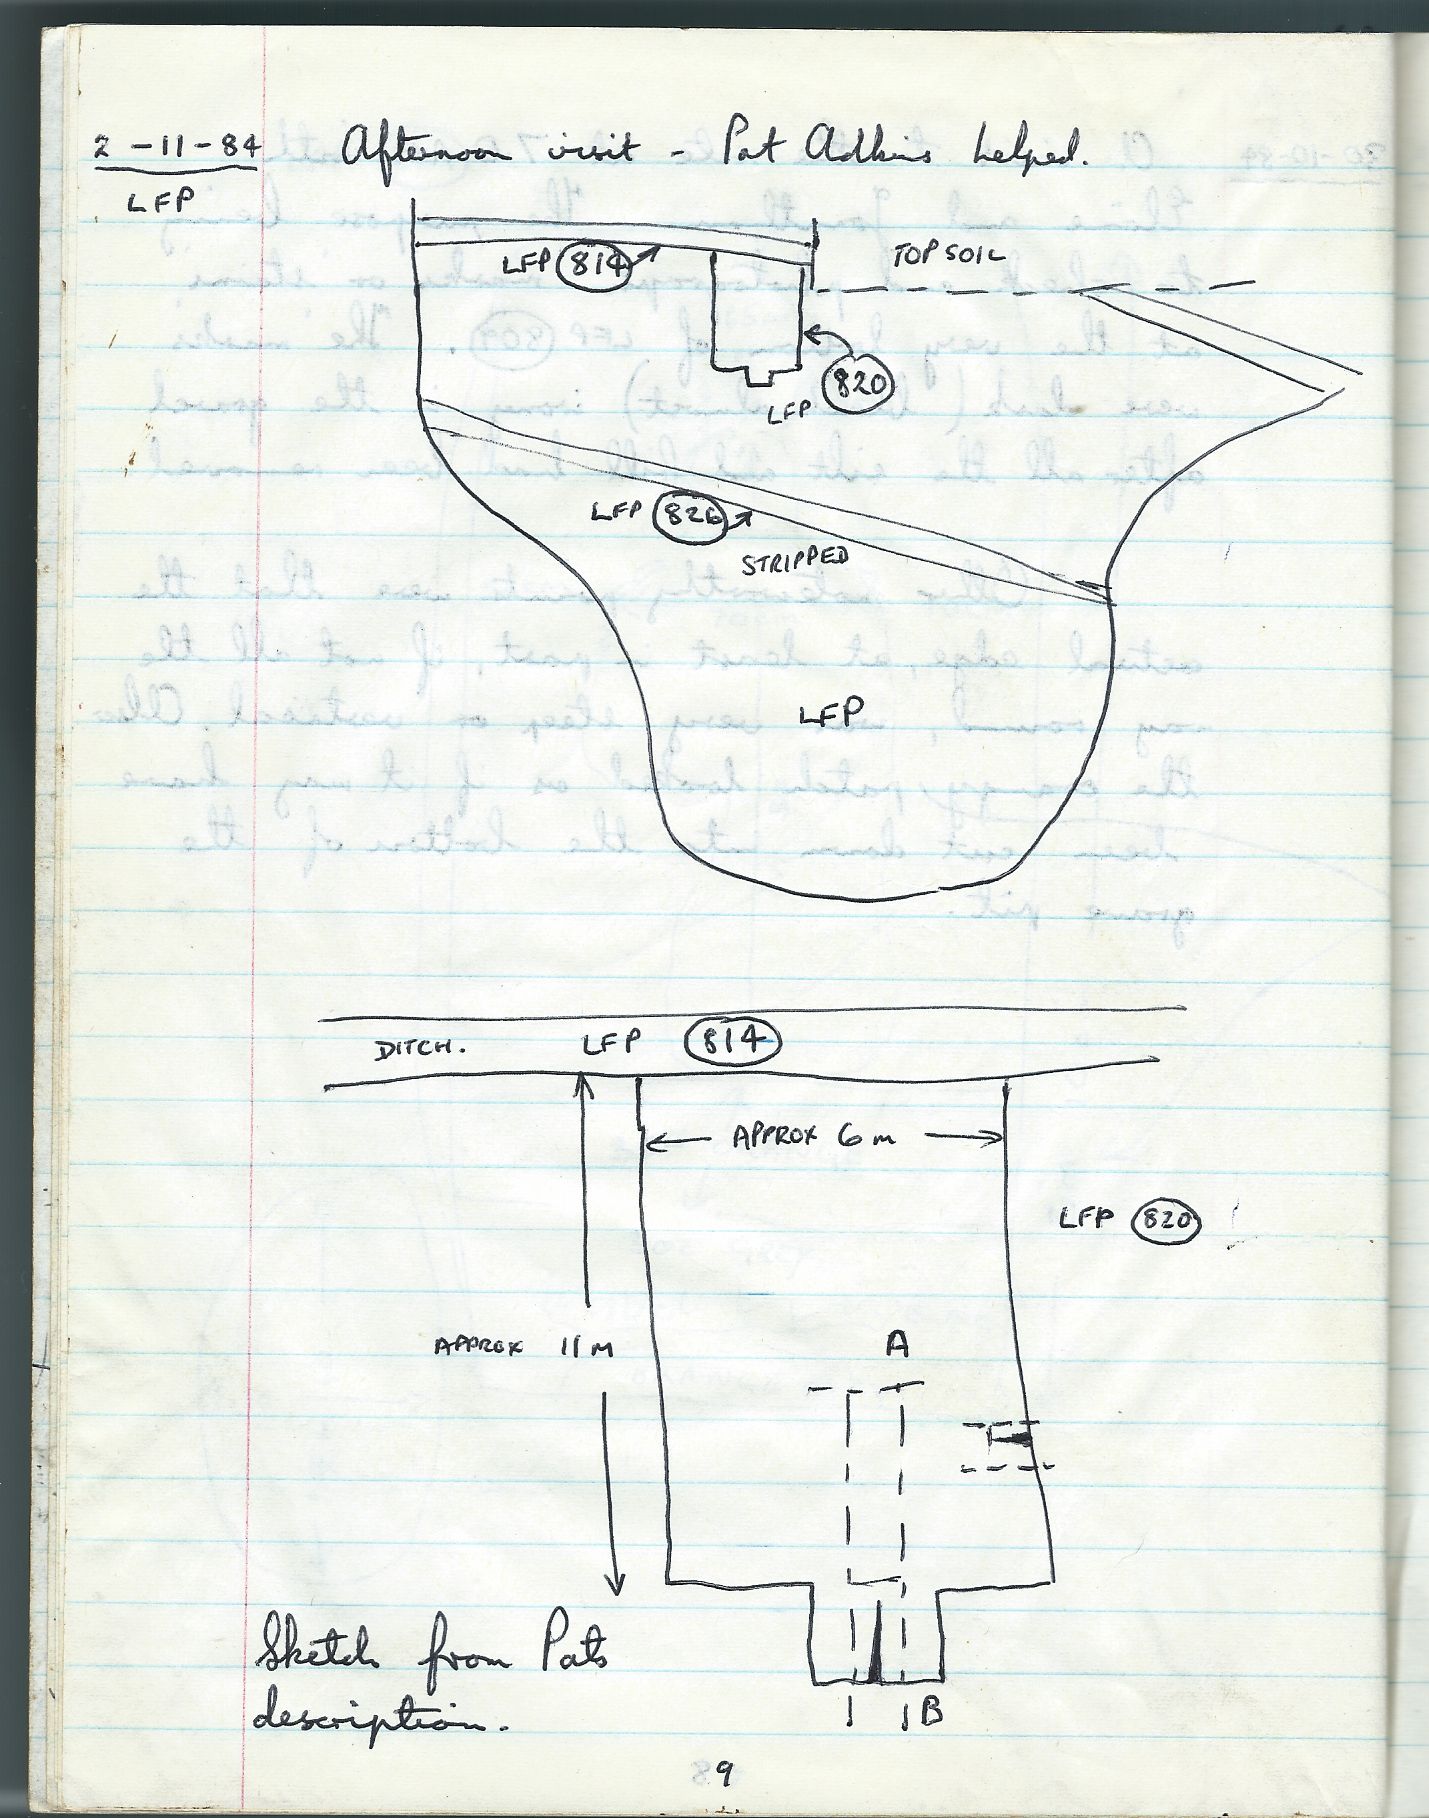 2-11-84 Afternoon visit - Pat Adkins helped.
LFP
LFP 814
TOP SOIL
820
LFP
LFP 826
STRIPPED
LFP
DITCH. LFP 814
APPROX 6m
LFP 820
APPROX 11M
A
Sketch from Pats
description.
B
9